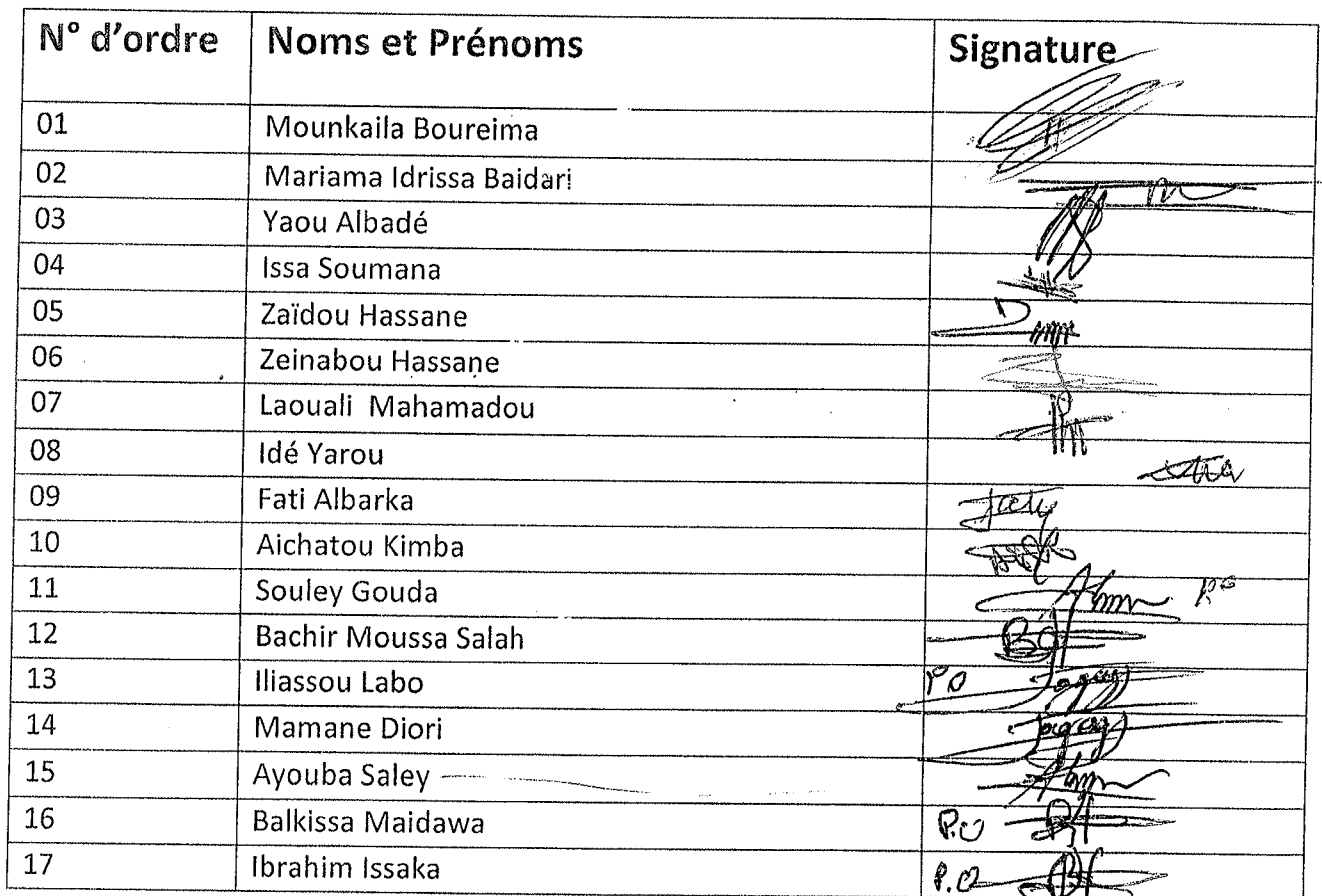 N° d'ordre Noms et Prénoms Signature
01 Mounkaila Boureima
02 Mariama Idrissa Baidari
03 Yaou Albadé
04 Issa Soumana
05 Zaïdou Hassane
06 Zeinabou Hassane
07 Laouali Mahamadou
08 Idé Yarou
09 Fati Albarka
10 Aichatou Kimba
11 Souley Gouda
12 Bachir Moussa Salah
13 Iliassou Labo PO
14 Mamane Diori
15 Ayouba Saley
16 Balkissa Maidawa P.O
17 Ibrahim Issaka P.O